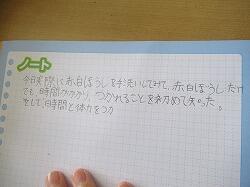 ノート
今日実際に赤白ぼうしを手洗いしてみて、赤白ぼうしだけ
でも、時間がかかり、つかれることを初めて知った。
そして、時間と体力をつか